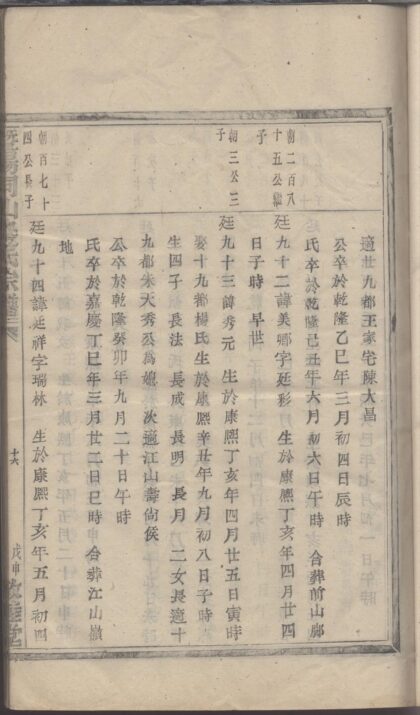 適廿九都王家宅陳大昌
公卒於乾隆乙巳年三月初四日辰時
氏卒於乾隆己丑年六月初六日午時 合葬前山廊
朝二百八
十五公繼
子
廷九十二諱美卿字廷彩 生於康熙丁亥年四月廿四
日子時 早世
朝三公三
子
廷九十三諱秀元 生於康熙丁亥年四月廿五日寅時
娶十九都楊氏生於康熙辛丑年九月初八日子時
生四子 長法 長成 長明 長月 二女長適十
九都朱天秀公為媳 次適江山壽尚侯
公卒於乾隆癸卯年九月二十日午時
氏卒於嘉慶丁巳年三月廿二日巳時 合葬江山嶺
地
朝百七十
四公長子
廷九十四諱廷祥字瑞林 生於康熙丁亥年五月初四
氏宗譜
十六
戊申